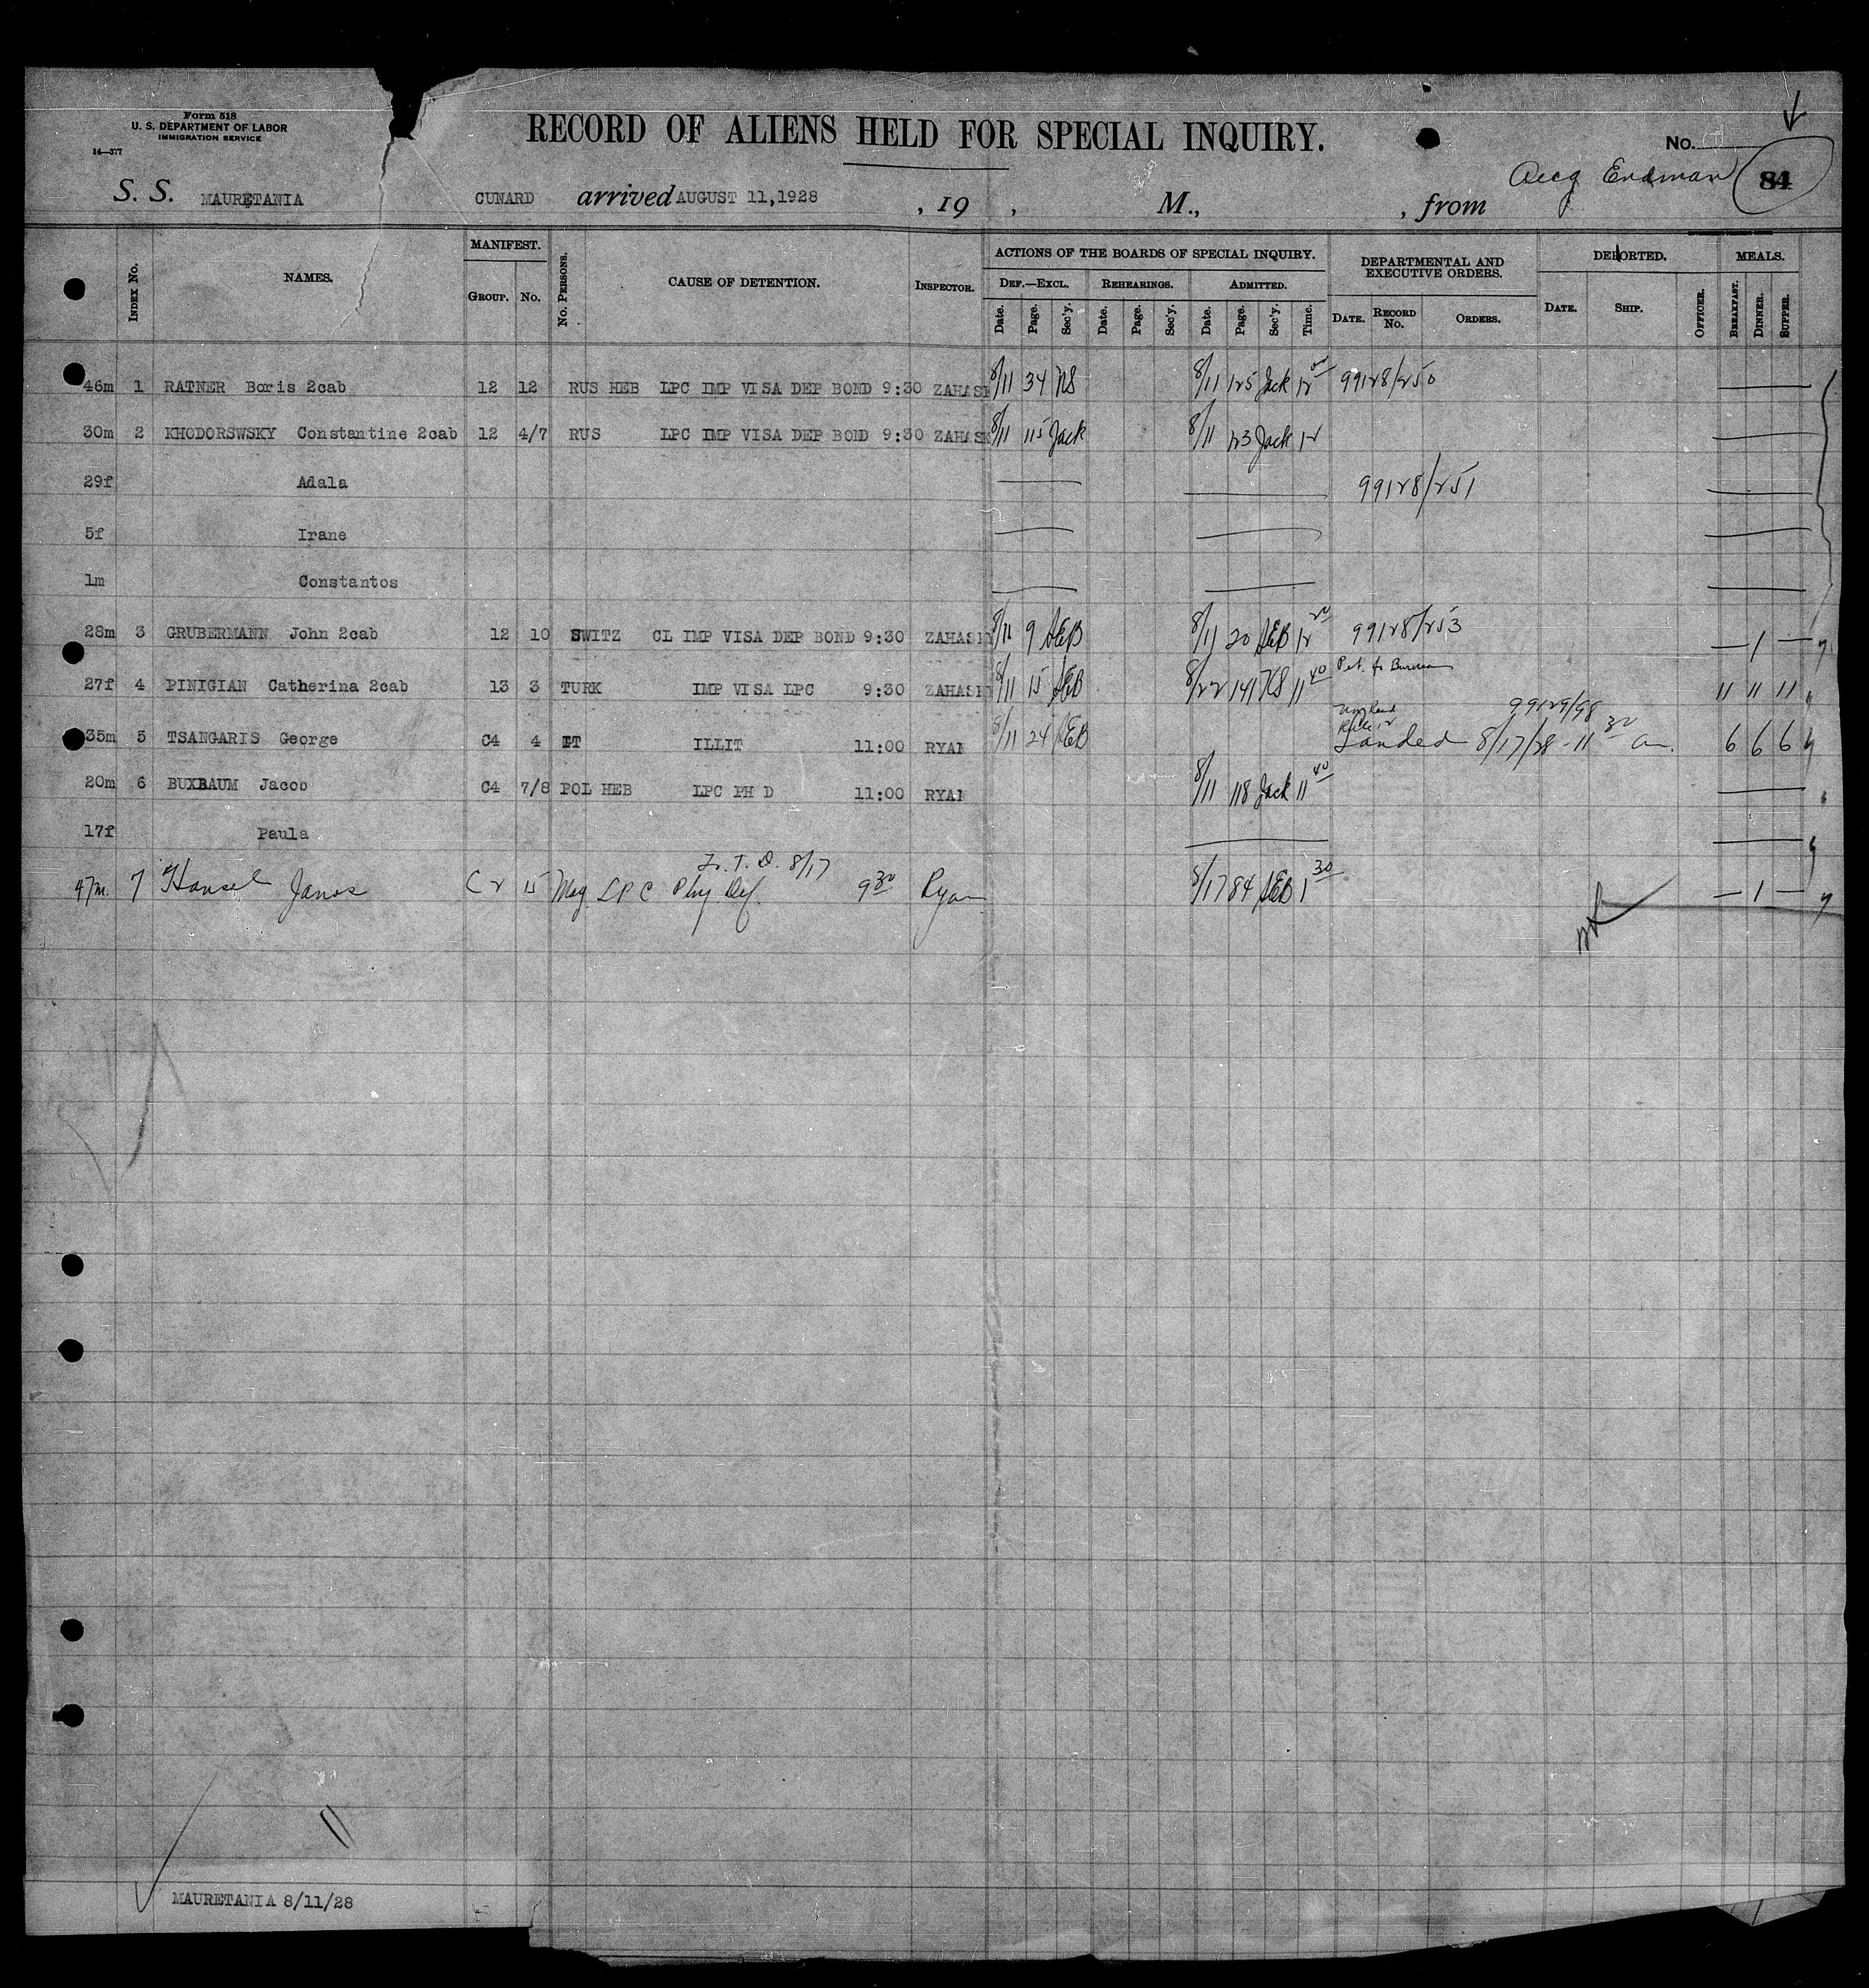 Form 518
U. S. DEPARTMENT OF LABOR
IMMIGRATION SERVICE
14—377
RECORD OF ALIENS HELD FOR SPECIAL INQUIRY.
No.
84
S. S. MAURETANIA CUNARD arrived AUGUST 11, 1928 , 19 , M., , from
Index No. NAMES. MANIFEST. Group. No. No. Persons. CAUSE OF DETENTION. Inspector. ACTIONS OF THE BOARDS OF SPECIAL INQUIRY. Def.—Excl. Date. Page. Sec'y. Rehearings. Date. Page. Sec'y. Admitted. Date. Page. Sec'y. Time. DEPARTMENTAL AND EXECUTIVE ORDERS. Date. Record No. Orders. DEPORTED. Date. Ship. Officer. MEALS. Breakfast. Dinner. Supper.
46m 1 RATNER Boris 2cab 12 12 RUS HEB LPC IMP VISA DEP BOND 9:30 ZAHASK 8/11 34 NS 8/11 125 Jack 12 99128/250
30m 2 KHODORSWSKY Constantine 2cab 12 4/7 RUS LPC IMP VISA DEP BOND 9:30 ZAHASK 8/11 115 Jack 8/11 123 Jack 12
29f Adala 99128/251
5f Irane
1m Constantos
28m 3 GRUBERMANN John 2cab 12 10 SWITZ CL IMP VISA DEP BOND 9:30 ZAHASK 8/11 9 SEB 8/11 20 SEB 12 20 99128/253 — 1 —
27f 4 PINIGIAN Catherina 2cab 13 3 TURK IMP VISA LPC 9:30 ZAHASK 8/11 15 SEB 8/22 141 NS 11 40 Pet. to Bureau 11 11 11
35m 5 TSANGARIS George C4 4 IT ILLIT 11:00 RYAN 8/11 24 SEB 99129/98 Landed 8/17/28 - 11 30 am. 6 6 6
20m 6 BUXBAUM Jacob C4 7/8 POL HEB LPC PH D 11:00 RYAN 8/11 118 Jack 11 40
17f Paula
47m. 7 Hansel Janos C2 15 Mag LPC Phy Def. 8/17 9 30 Ryan 8/17 84 SEB 1 30 — 1 —
MAURETANIA 8/11/28